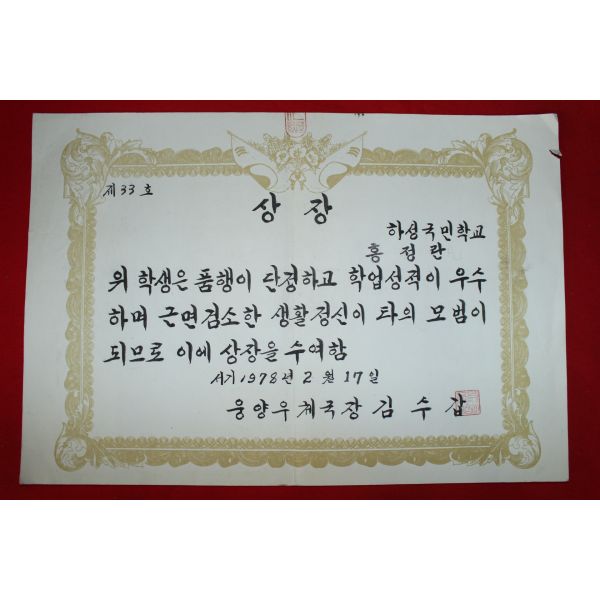 제33호
상장
하성국민학교
홍정란
위 학생은 품행이 단정하고 학업성적이 우수
하며 근면검소한 생활정신이 타의 모범이
되므로 이에 상장을 수여함
서기 1978년 2월 17일
웅양우체국장 김수갑